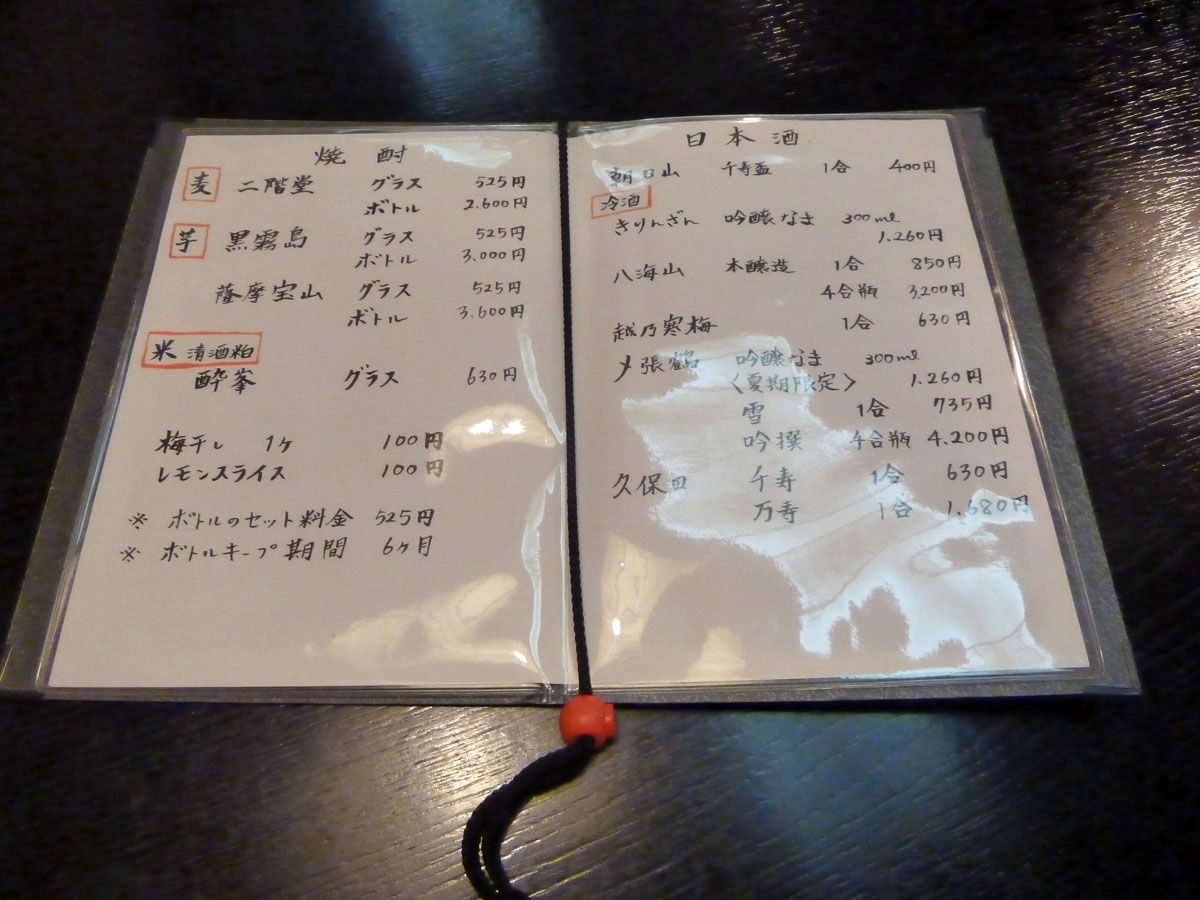 焼酎
麦 二階堂 グラス 525円
ボトル 2.600円
芋 黒霧島 グラス 525円
ボトル 3.000円
薩摩宝山 グラス 525円
ボトル 3.600円
米 清酒粕
酔峯 グラス 630円
梅干し 1ヶ 100円
レモンスライス 100円
※ ボトルのセット料金 525円
※ ボトルキープ期間 6ヶ月
日本酒
朝日山 千寿盃 1合 400円
冷酒
きりんざん 吟醸なま 300ml
1.260円
八海山 本醸造 1合 850円
4合瓶 3.200円
越乃寒梅 1合 630円
〆張鶴 吟醸なま 300ml
〈夏期限定〉 1.260円
雪 1合 735円
吟撰 4合瓶 4.200円
久保田 千寿 1合 630円
万寿 1合 1.680円